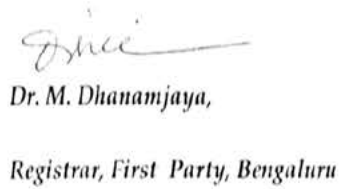 Dr. M. Dhanamjaya,
Registrar, First Party, Bengaluru